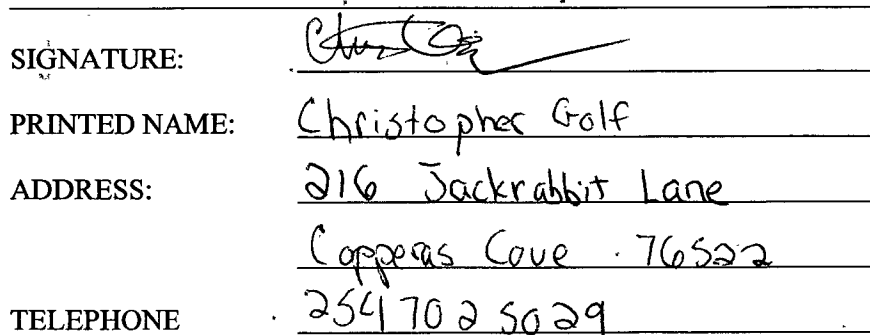 SIGNATURE:
PRINTED NAME: Christopher Golf
ADDRESS: 216 Jackrabbit Lane
Copperas Cove 76522
TELEPHONE 254 702 5029